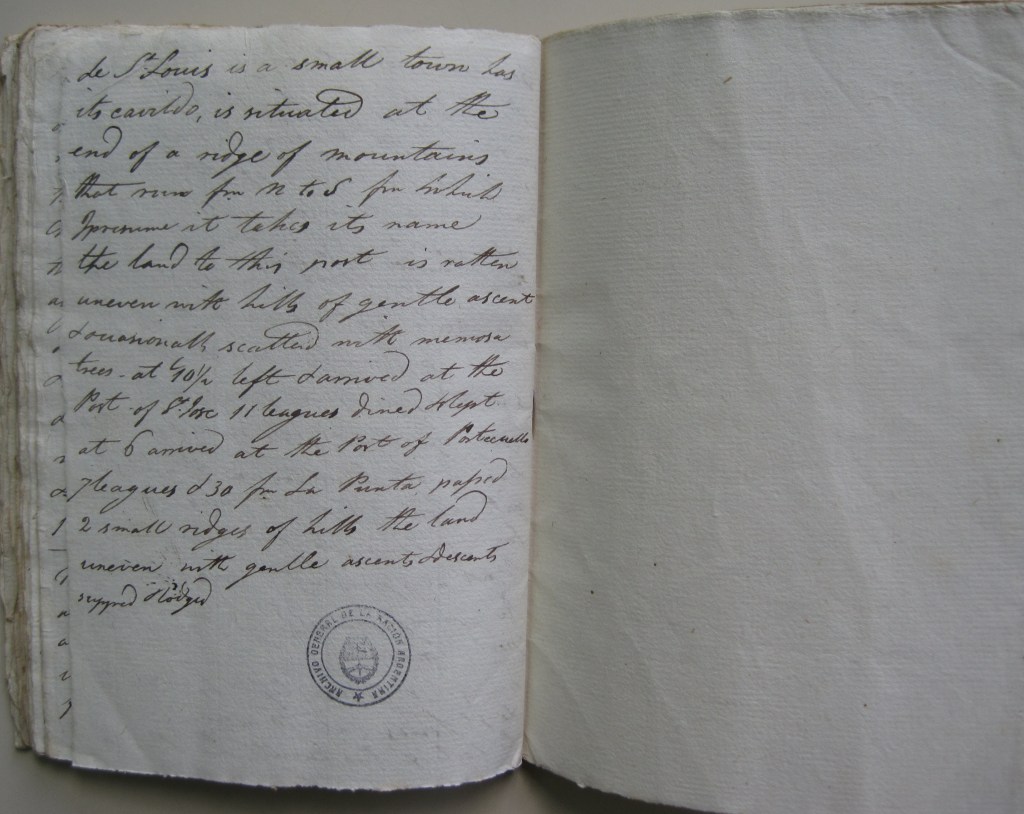 de St. Louis is a small town has
its cavildo, is situated at the
end of a ridge of mountains
that run fm N to S fm which
I presume it takes its name
the land to this post is rather
uneven with hills of gentle ascent
& occasionally scatterd with memosa
trees - at 10½ left & arrived at the
Post of St. Jose 11 leagues dined & slept
at 6 arrived at the Post of Portezuelo
7 leagues & 30 fm La Punta passed
2 small ridges of hills the land
uneven with gentle ascents & descents
suppred & lodged
ARCHIVO GENERAL DE LA NACION ARGENTINA